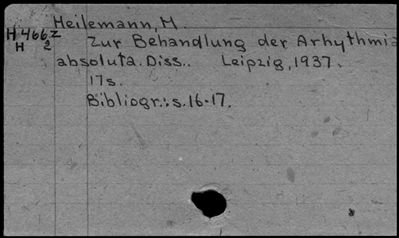 Heilemann, M.
H4662
H 2
Zur Behandlung der Arhythmia
absoluta. Diss.. Leipzig, 1937.
17s.
Bibliogr.: s. 16-17.